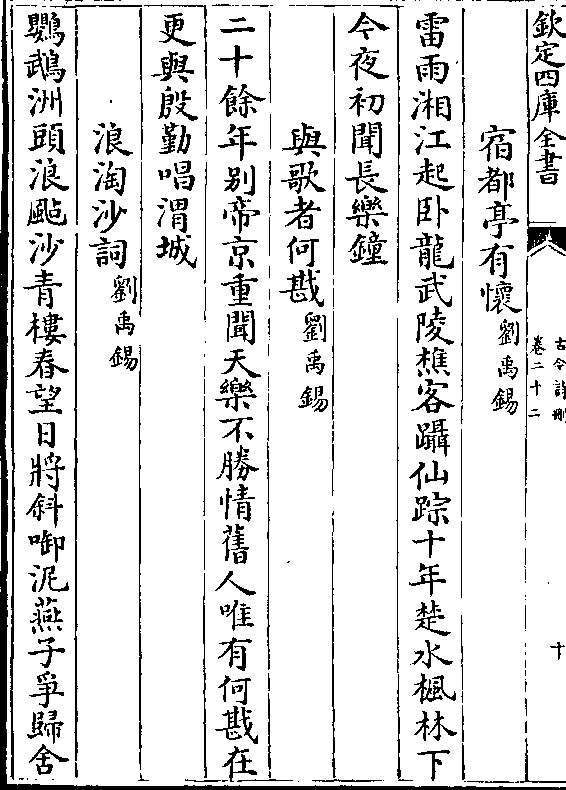 欽定四庫全書
古今詩刪
卷二十二
十
宿都亭有懷劉禹錫
雷雨湘江起卧龍武陵樵客躡仙踪十年楚水楓林下
今夜初聞長樂鐘
與歌者何戡劉禹錫
二十餘年别帝京重聞天樂不勝情舊人唯有何戡在
更與殷勤唱渭城
浪淘沙詞劉禹錫
鸚鵡洲頭浪颭沙青樓春望日將斜啣泥燕子爭歸舍